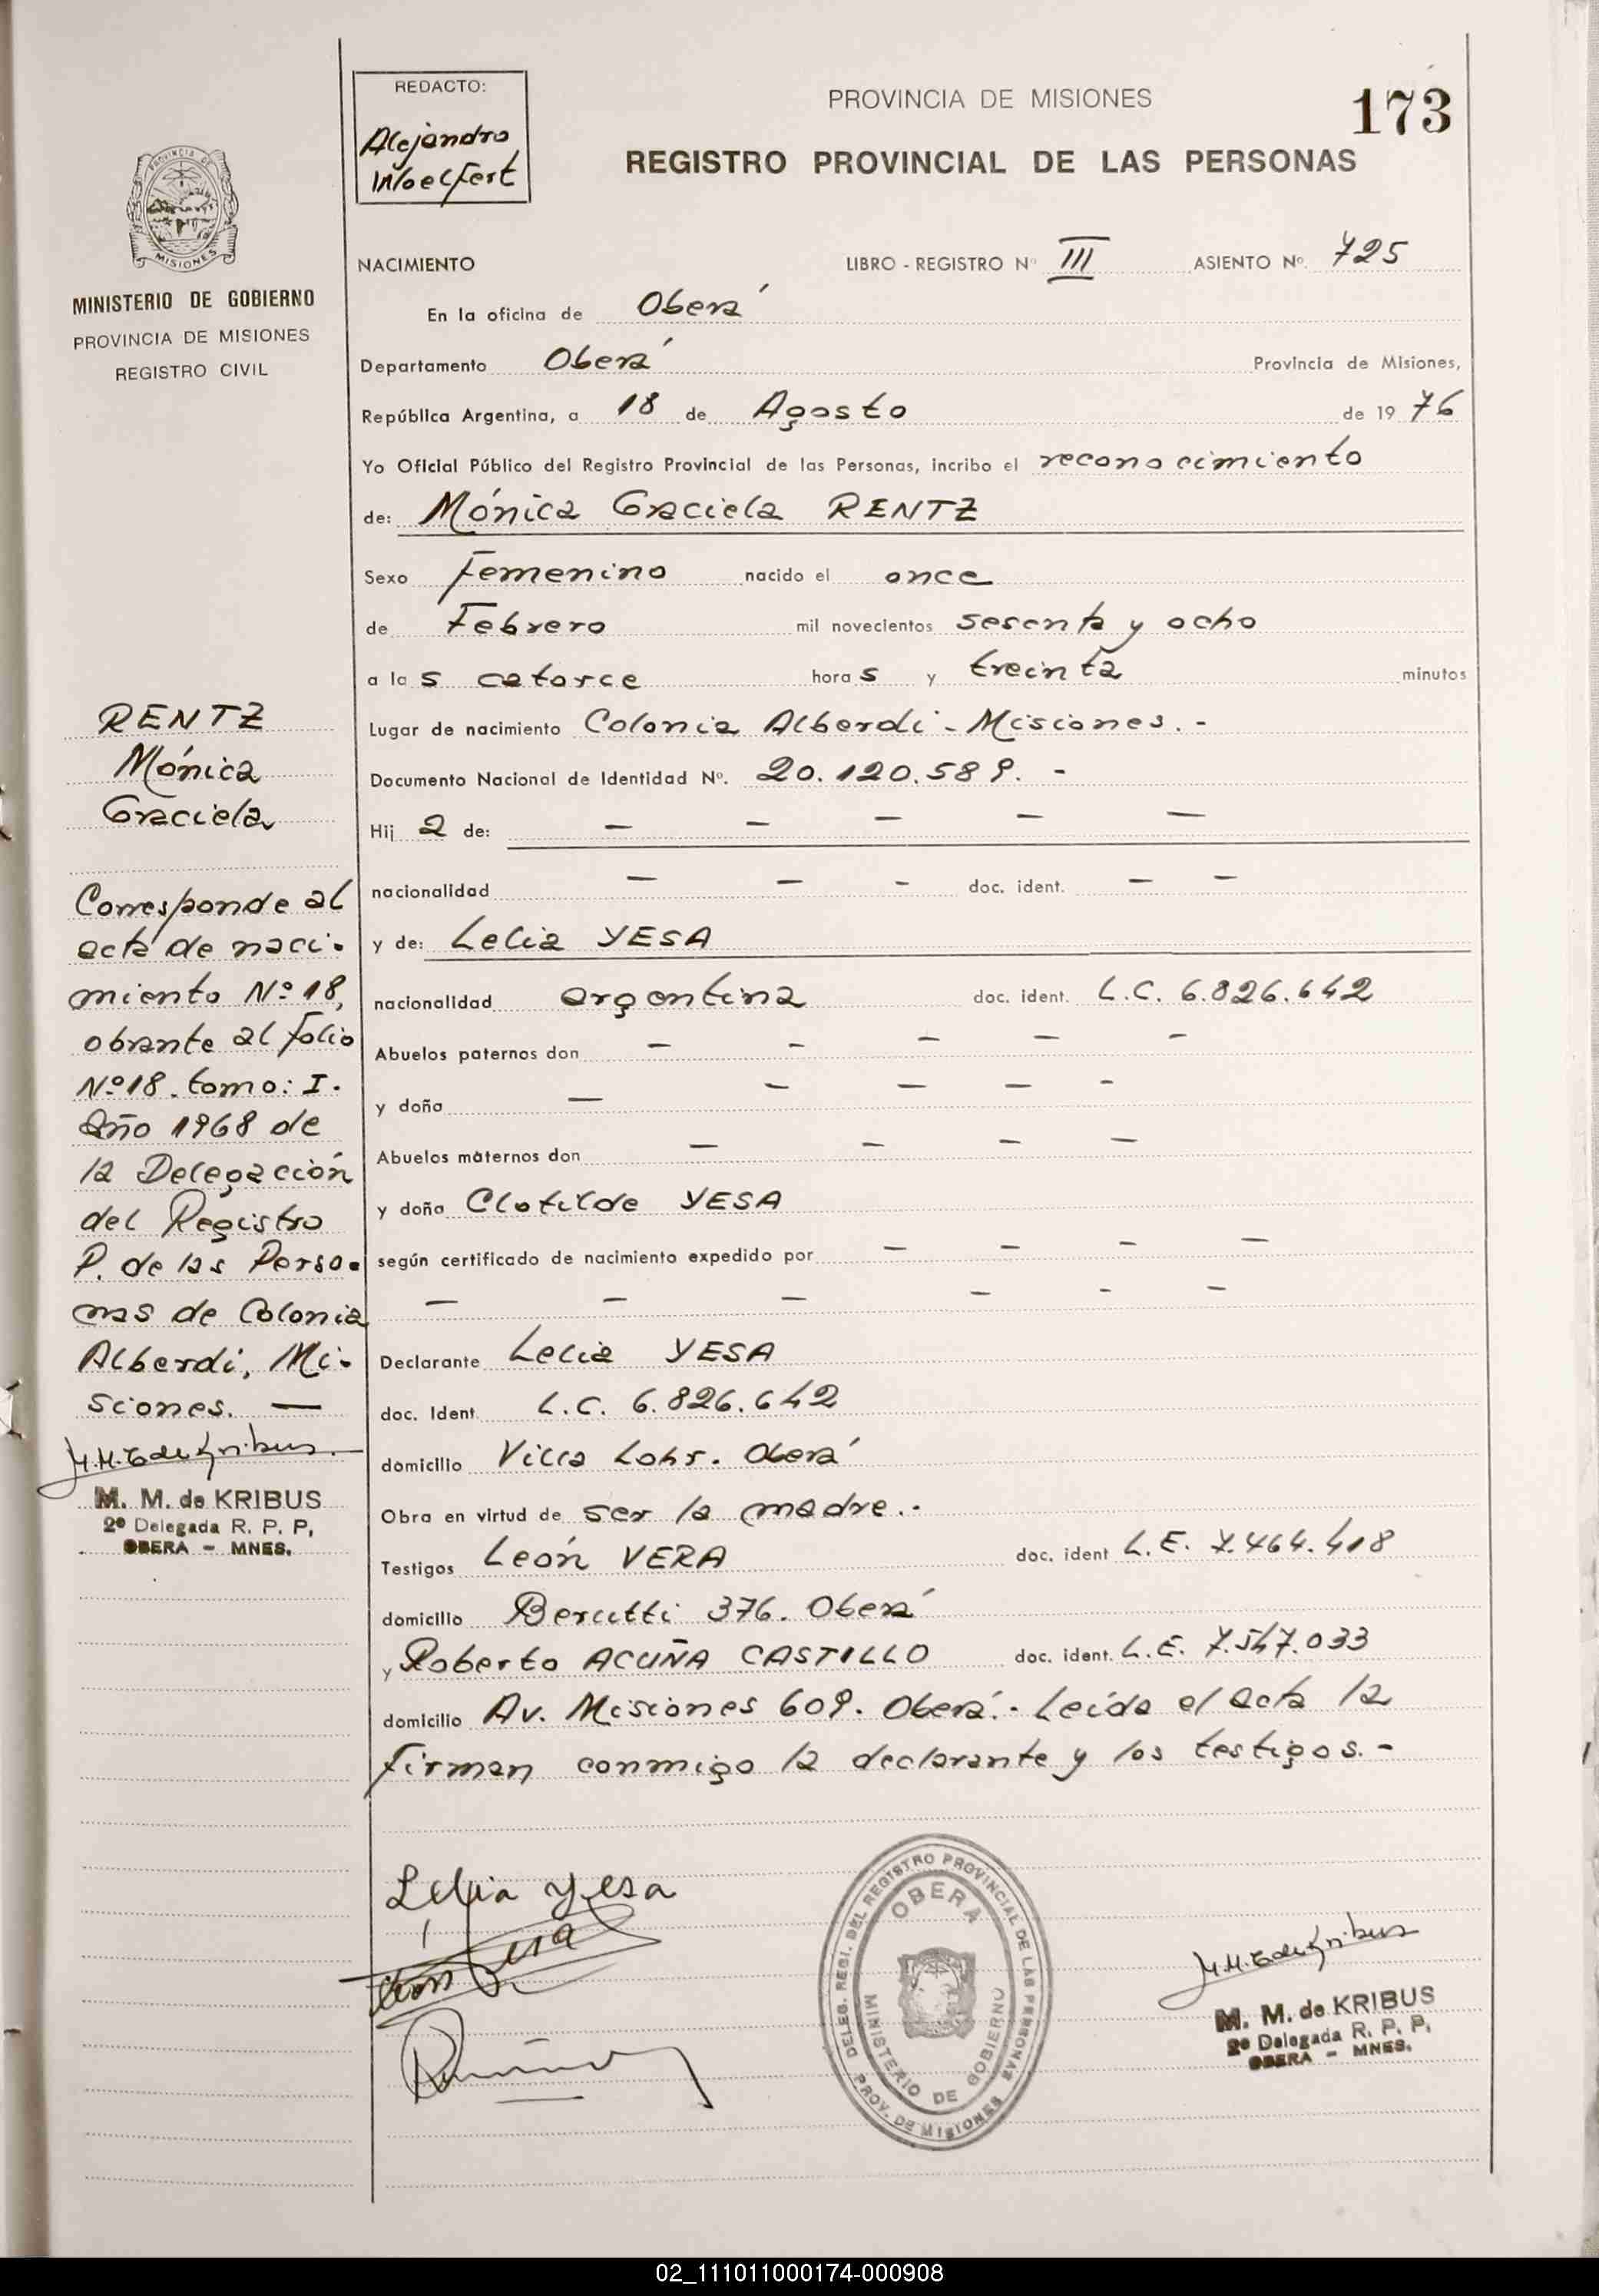 REDACTO:
Alejandro
Woelfert
PROVINCIA DE MISIONES
173
REGISTRO PROVINCIAL DE LAS PERSONAS
PROVINCIA DE
MISIONES
MINISTERIO DE GOBIERNO
PROVINCIA DE MISIONES
REGISTRO CIVIL
NACIMIENTO LIBRO - REGISTRO Nº III ASIENTO Nº. 725
En la oficina de Oberá
Departamento Oberá Provincia de Misiones,
República Argentina, a 18 de Agosto de 19 76
Yo Oficial Público del Registro Provincial de las Personas, incribo el reconocimiento
de: Mónica Graciela RENTZ
Sexo Femenino nacido el once
de Febrero mil novecientos sesenta y ocho
a la s catorce hora s y treinta minutos
Lugar de nacimiento Colonia Alberdi - Misiones. -
Documento Nacional de Identidad Nº. 20.120.589. -
Hij a de: — — — — —
nacionalidad — — - doc. ident. — —
y de: Lelia YESA
nacionalidad argentina doc. ident. L.C. 6.826.642
Abuelos paternos don — - — — -
y doña — — — — -
Abuelos maternos don — — — —
y doña Clotilde YESA
según certificado de nacimiento expedido por — — — —
— — — — - —
Declarante Lelia YESA
doc. Ident. L.C. 6.826.642
domicilio Villa Lohr. Oberá
Obra en virtud de ser la madre.-
Testigos León VERA doc. ident L.E. 7.464.418
domicilio Berutti 376. Oberá
y Roberto ACUÑA CASTILLO doc. ident. L.E. 7.547.033
domicilio Av. Misiones 609. Oberá.- Leída el acta la
firman conmigo la declarante y los testigos.-
RENTZ
Mónica
Graciela
Corresponde al
acta de naci-
miento Nº 18,
obrante al folio
Nº 18. tomo: I.
Año 1968 de
la Delegación
del Registro
P. de las Perso-
nas de Colonia
Alberdi, Mi-
siones. —
M.M.G de Kribus
M. M. de KRIBUS
2º Delegada R. P. P,
OBERA - MNES.
Lelia Yesa
León Vera
DELEG. REGI. DEL REGISTRO PROVINCIAL DE LAS PERSONAS
OBERA
MINISTERIO DE GOBIERNO
PROV. DE MISIONES
M.M.G de Kribus
M. M. de KRIBUS
2º Delegada R. P. P.
OBERA - MNES.
02_111011000174-000908